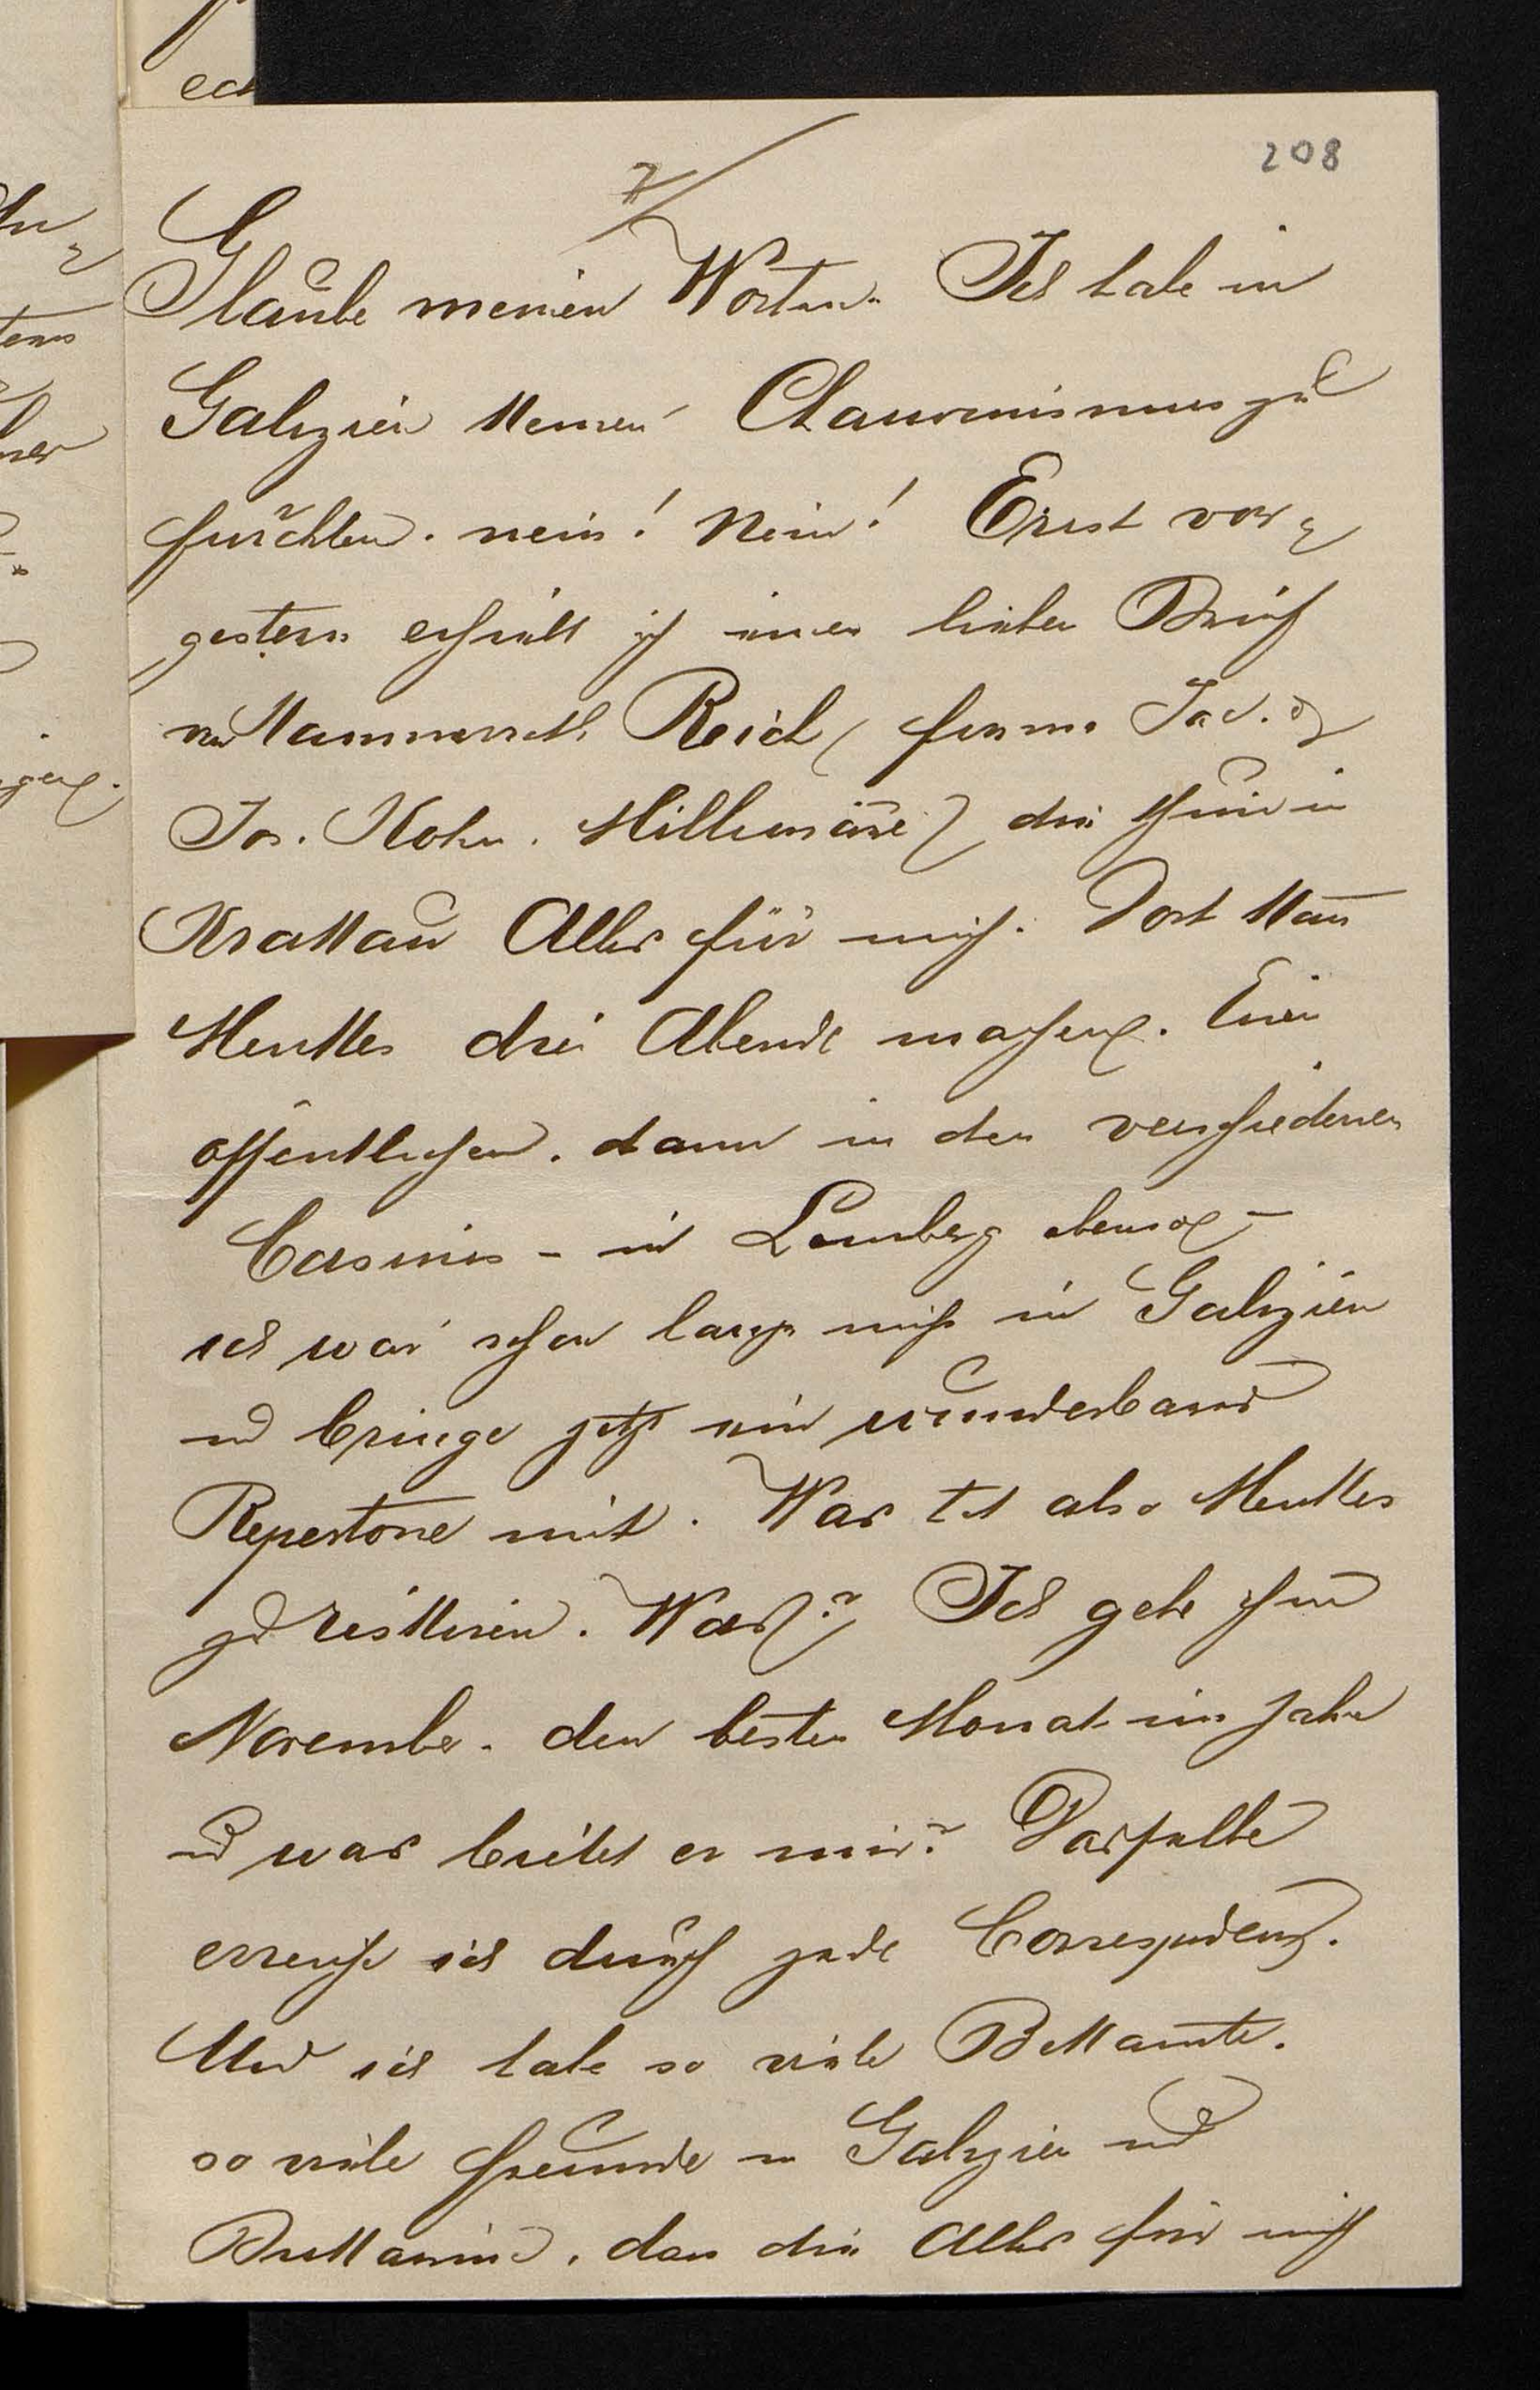 208
7/
Glaube meinen Worten. Ich habe in
Galizien keinen Chauvinismus zu
fürchten. nein! Nein! Erst vor=
gestern erhielt ich einen lieben Brief
von Kammerrath Reich (Firma Jac. &
Jos. Kohn. Millionäre) die thuen in
Krakau Alles für mich. Dort kann
Menkes drei Abende machen. Einen
öffentlichen. dann in den verschiedenen
Casinos - in Lemberg ebenso -
ich war schon lange nicht in Galizien
und bringe jetzt ein wunderbares
Repertoire mit. Was hat also Menkes
zu riskiren. Was? Ich gebe ihm
November. den besten Monat im Jahr
und was bietet er mir? Dasselbe
erreiche ich durch jede Correspondenz.
Und ich habe so viele Bekannte.
so viele Freunde in Galizien und
Bukowina. dass die Alles für mich